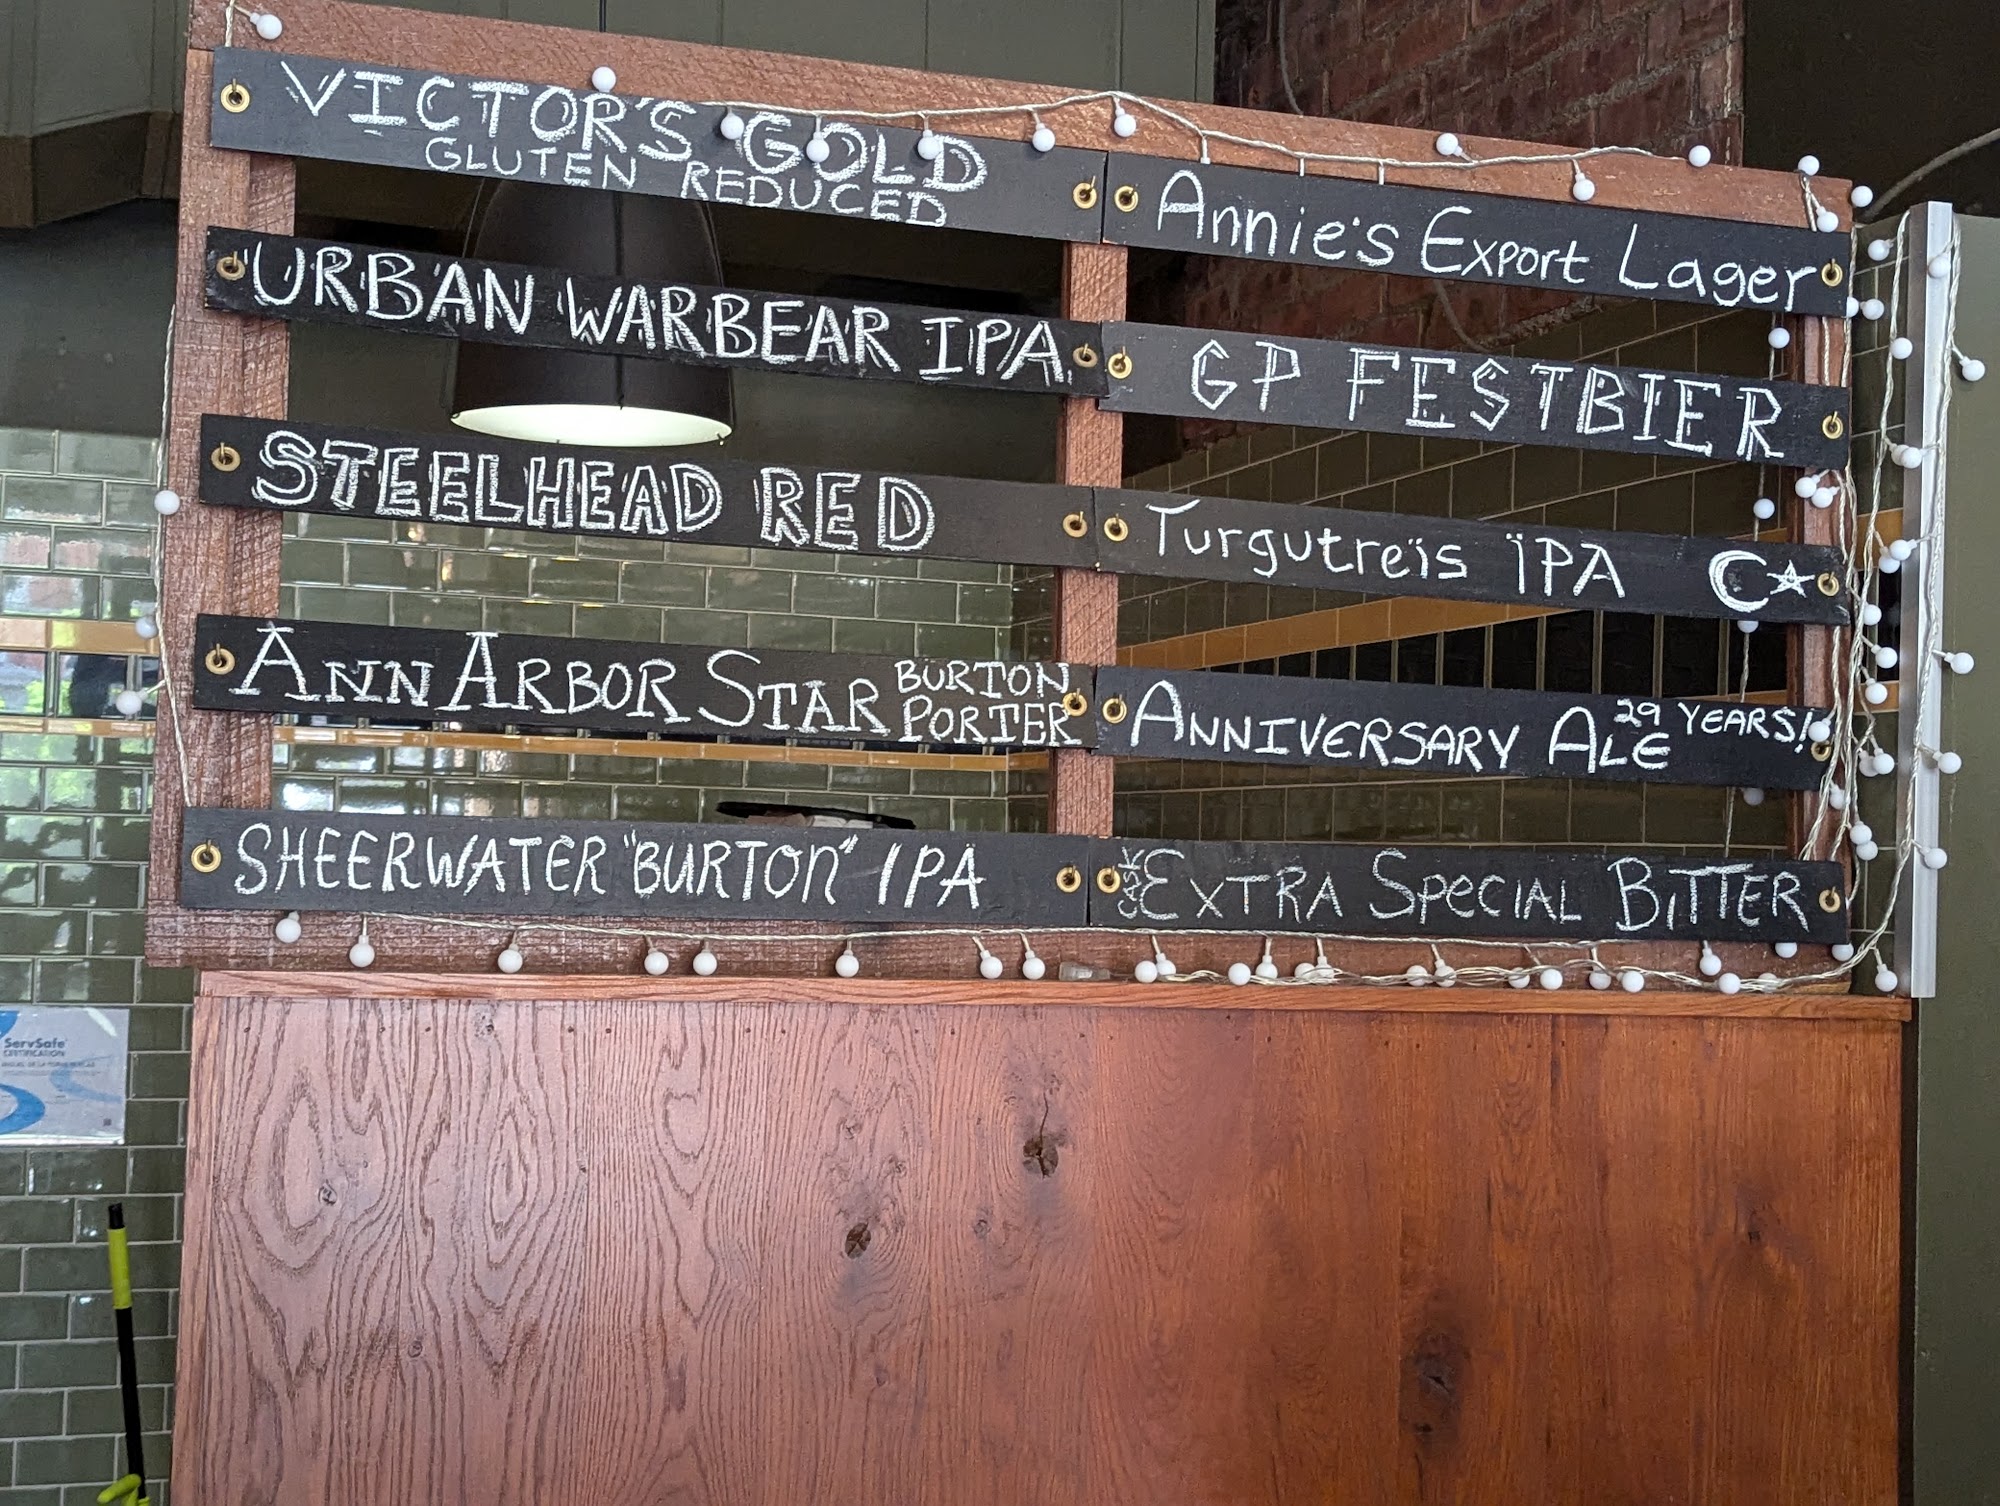 VICTOR'S GOLD
GLUTEN REDUCED
URBAN WARBEAR IPA
STEELHEAD RED
ANN ARBOR STAR BURTON PORTER
SHEERWATER "BURTON" IPA
Annie's Export Lager
GP FESTBIER
Turgutreïs ÏPA
ANNIVERSARY ALE 29 YEARS!
CASK EXTRA SPECIAL BITTER
ServSafe
CERTIFICATION